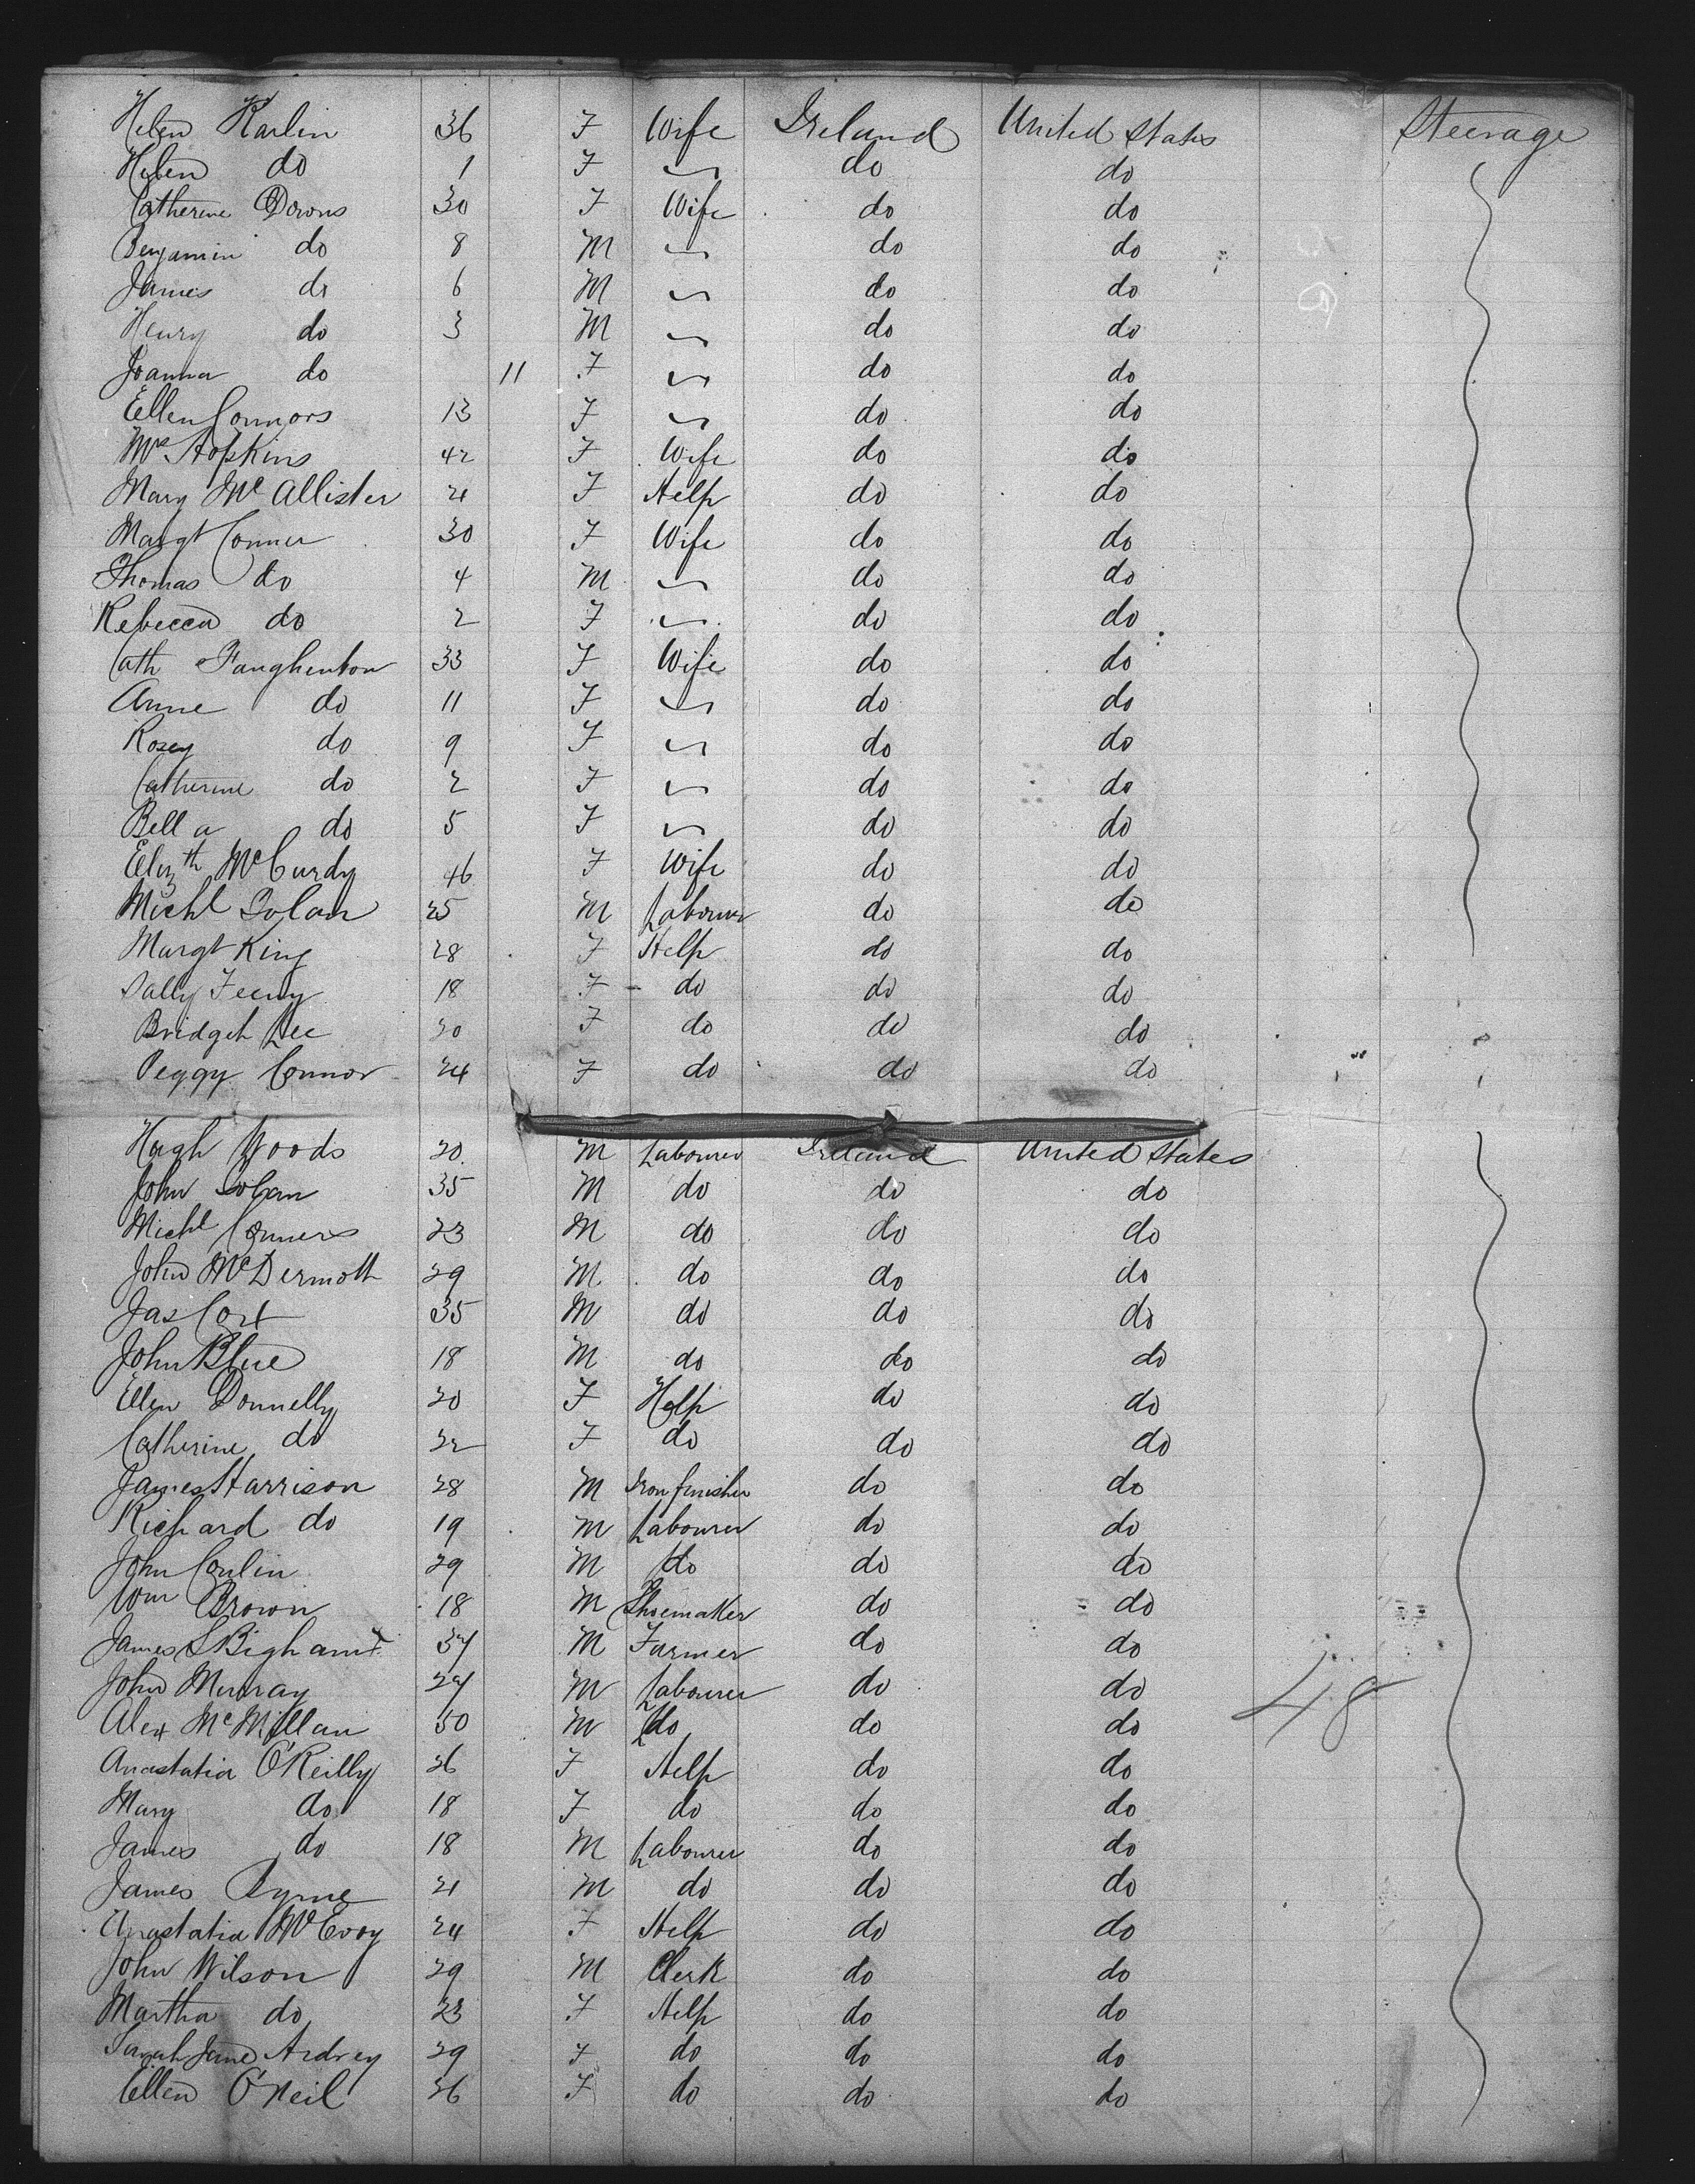 Helen Karlin 36 F Wife Ireland United States Steerage
Helen do 1 F do do
Catherine Downs 30 F Wife do do
Benjamin do 8 M do do
James do 6 M do do
Henry do 3 M do do
Joanna do 11 F do do
Ellen Connors 13 F do do
Mrs Hopkins 42 F Wife do do
Mary McAllister 21 F Help do do
Margt Conner 30 F Wife do do
Thomas do 4 M do do
Rebecca do 2 F do do
Cath Faughenbon 33 F Wife do do
Anne do 11 F do do
Rosey do 9 F do do
Catherine do 2 F do do
Bella do 5 F do do
Elizth McCurdy 46 F Wife do do
Michl Dolan 25 M Labourer do do
Margt King 28 F Help do do
Sally Feeny 18 F do do do
Bridget Lee 20 F do do do
Peggy Connor 24 F do do do
Hugh Woods 20 M Labourer Ireland United States
John Dolan 35 M do do do
Michl Conners 23 M do do do
John McDermott 29 M do do do
Jas 35 M do do do
John Blue 18 M do do do
Ellen Donnelly 20 F Help do do
Catherine do 22 F do do do
James Harrison 28 M Iron finisher do do
Richard do 19 M Labourer do do
John Conlin 29 M do do do
Wm Brown 18 M Shoemaker do do
James S Bigham 37 M Farmer do do
John Murray 27 M Labourer do do
Alex McMillan 50 M do do do 48
Anastatia O'Reilly 26 F Help do do
Mary do 18 F do do do
James do 18 M Labourer do do
James Byrne 21 M do do do
Anastatia McEvoy 24 F Help do do
John Wilson 29 M Clerk do do
Martha do 23 F Help do do
Sarah Jane Ardrey 29 F do do do
Ellen O'Neil 26 F do do do